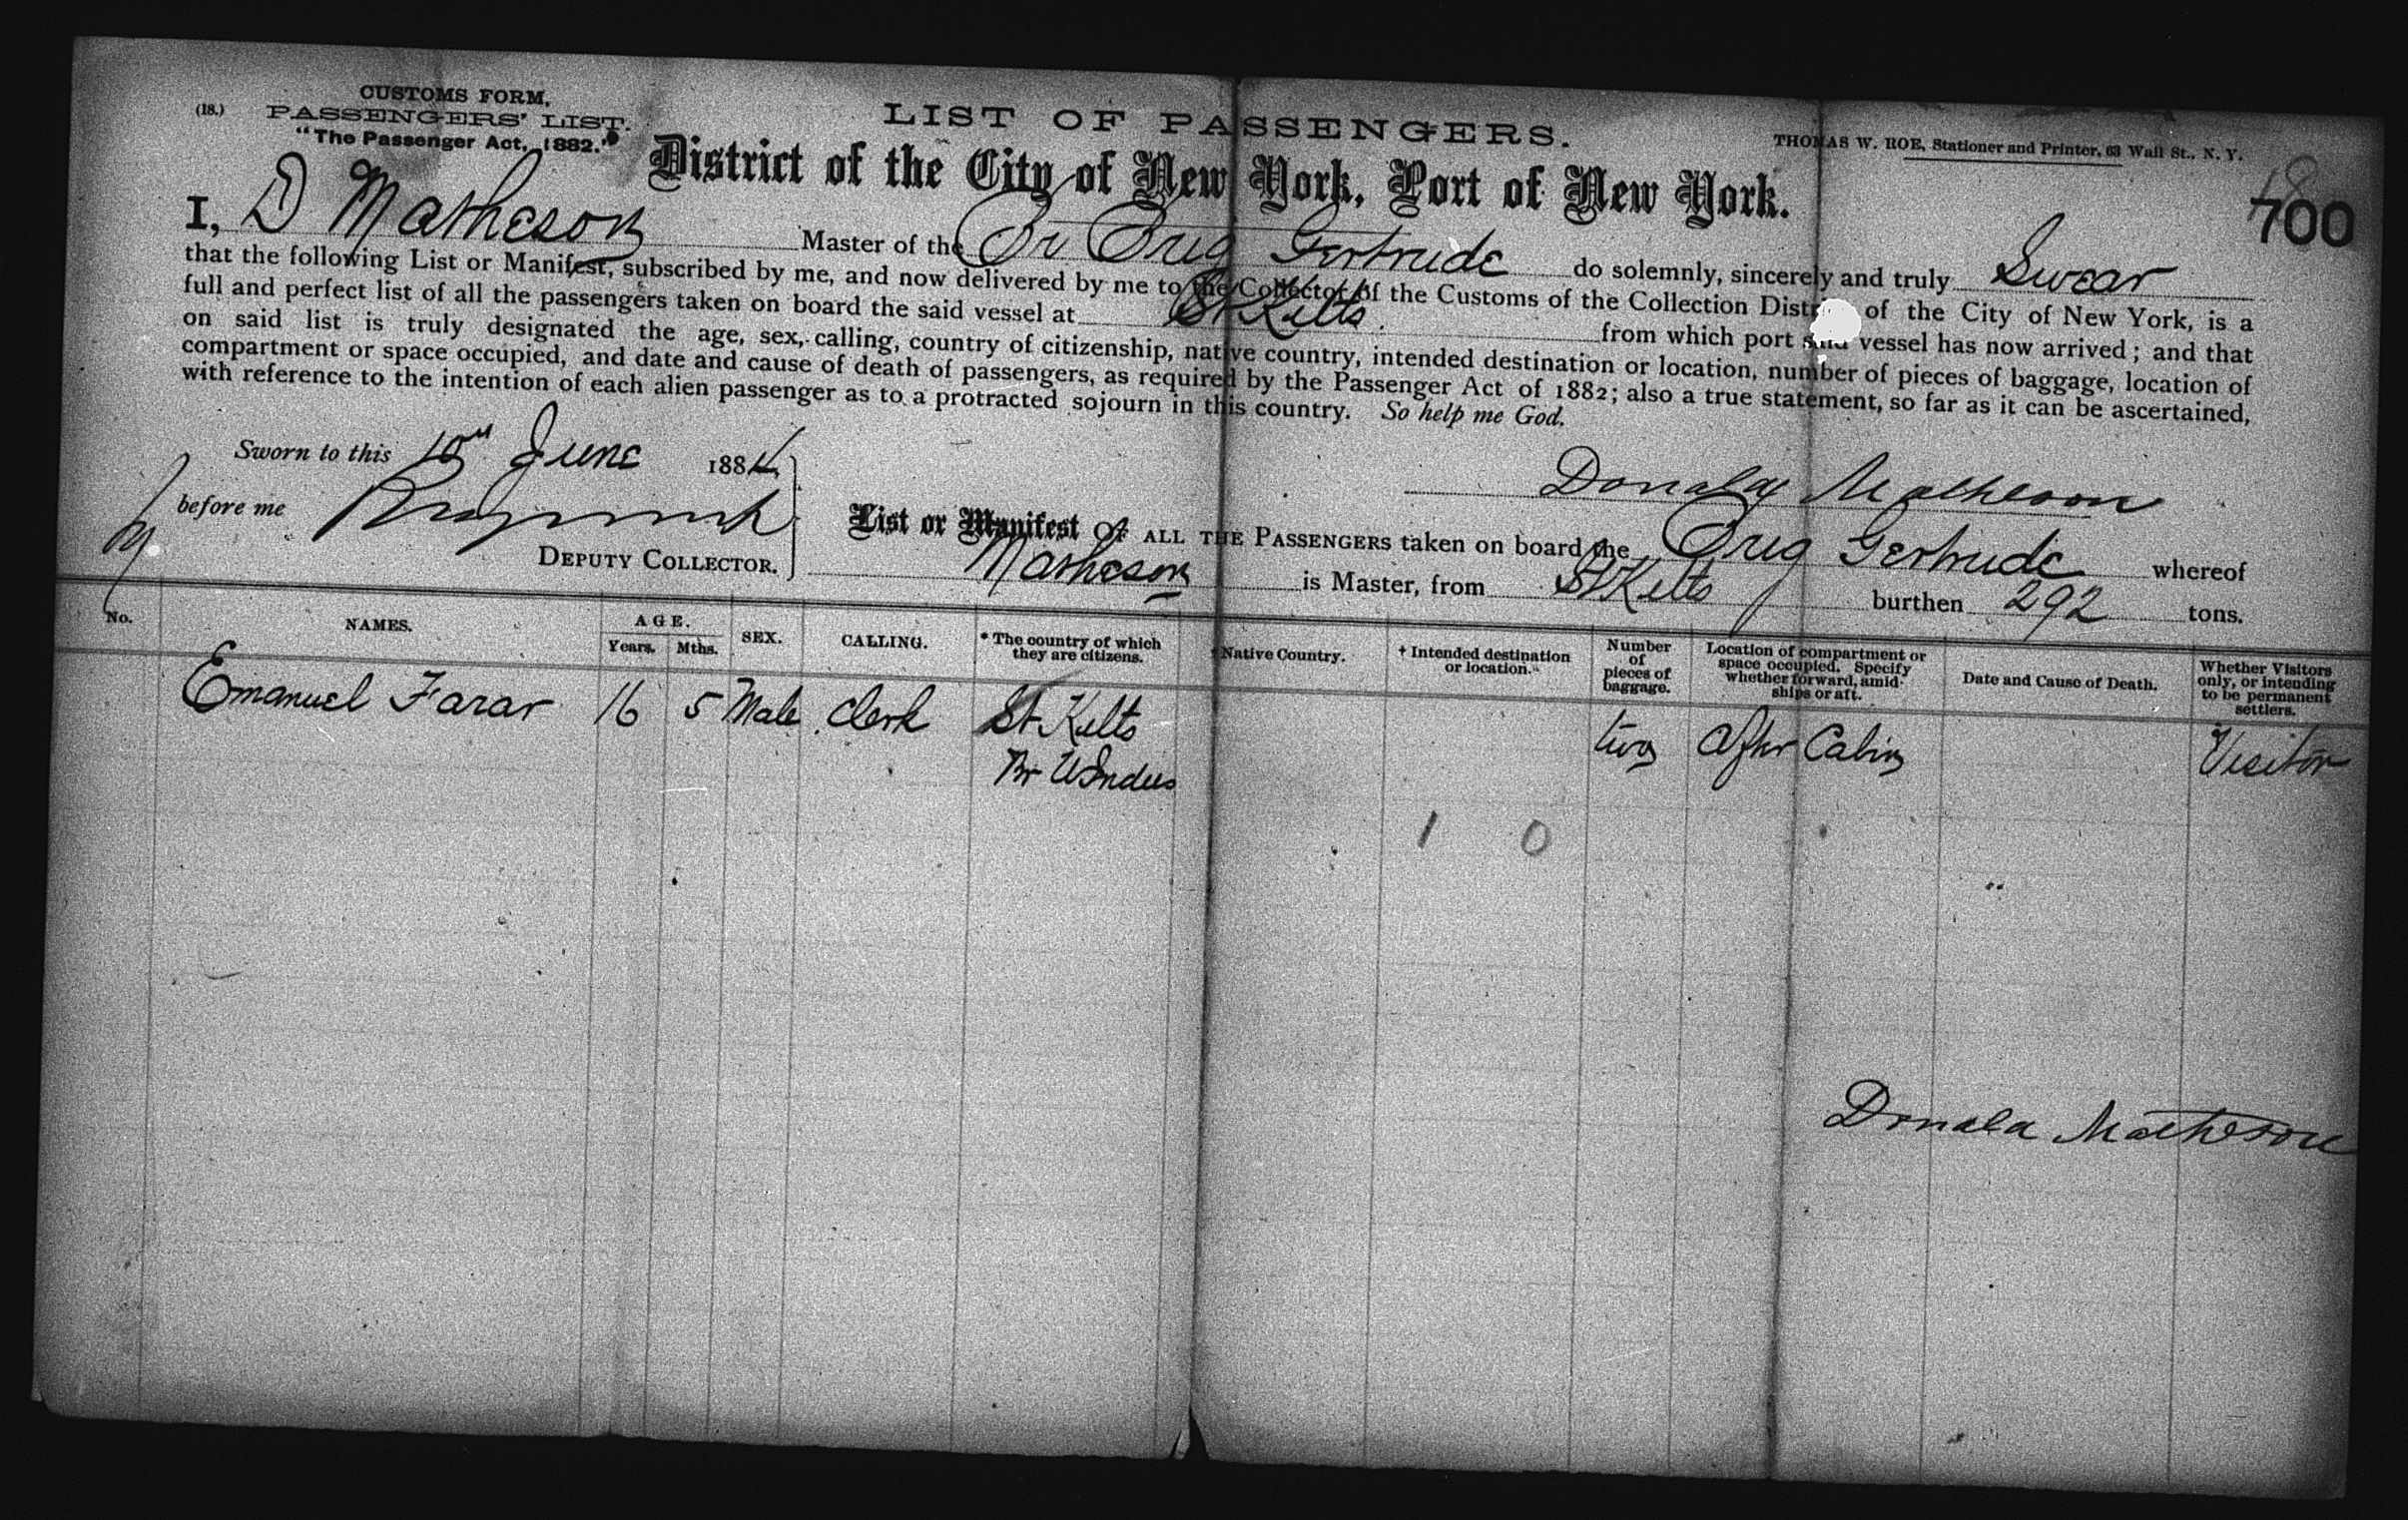 CUSTOMS FORM.
(18.) PASSENGERS' LIST.
"The Passenger Act, 1882."
LIST OF PASSENGERS.
THOMAS W. ROE, Stationer and Printer, 63 Wall St., N. Y.
District of the City of New York, Port of New York.
700
I, D Matheson Master of the Br Brig Gertrude do solemnly, sincerely and truly Swear
that the following List or Manifest, subscribed by me, and now delivered by me to the Collector of the Customs of the Collection District of the City of New York, is a
full and perfect list of all the passengers taken on board the said vessel at St Kitts from which port said vessel has now arrived; and that
on said list is truly designated the age, sex, calling, country of citizenship, native country, intended destination or location, number of pieces of baggage, location of
compartment or space occupied, and date and cause of death of passengers, as required by the Passenger Act of 1882; also a true statement, so far as it can be ascertained,
with reference to the intention of each alien passenger as to a protracted sojourn in this country. So help me God.
Sworn to this 10th June 1884
Donald Matheson
before me
DEPUTY COLLECTOR.
List or Manifest OF ALL THE PASSENGERS taken on board the Brig Gertrude whereof
Matheson is Master, from St Kitts burthen 292 tons.
No. NAMES. AGE. Years. Mths. SEX. CALLING. * The country of which they are citizens. † Native Country. † Intended destination or location. Number of pieces of baggage. Location of compartment or space occupied. Specify whether forward, amidships or aft. Date and Cause of Death. Whether Visitors only, or intending to be permanent settlers.
Emanuel Farar 16 5 Male clerk St Kitts two After Cabin Visitor
Br W Indies
1 0
Donald Matheson